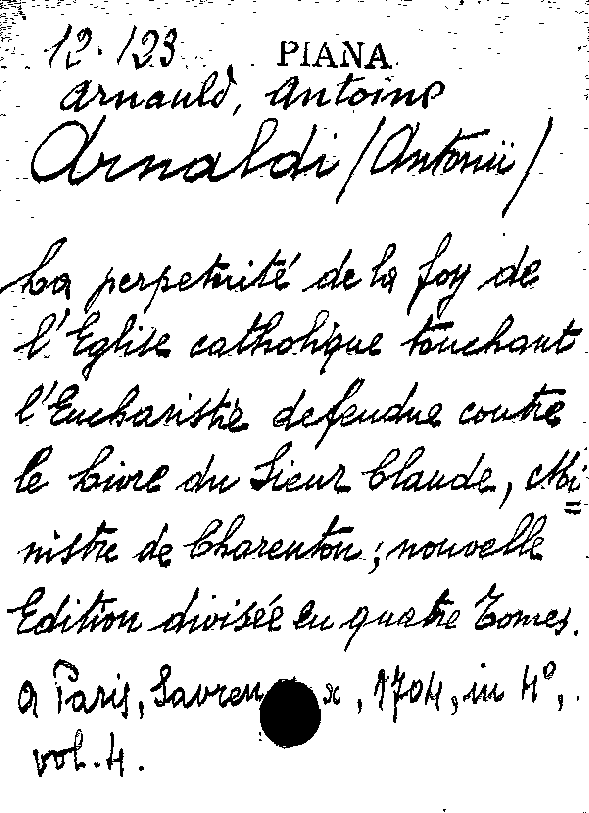 12.123 PIANA
Arnauld, Antoine
Arnaldi (Antonii)
La perpetuité de la foy de
l'Eglise catholique touchant
l'Eucharistie defendue contre
le Livre du Sieur Claude, Mi=
nistre de Charenton; nouvelle
Edition divisée en quatre Tomes.
a Paris, , 1704, in 4°,
vol. 4.